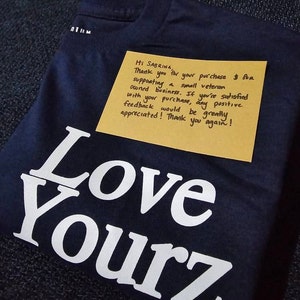 Hi Sabrina,
Thank you for your purchase & for
supporting a small veteran
owned business. If you're satisfied
with your purchase, any positive
feedback would be greatly
appreciated! Thank you again!
Love
Yourz